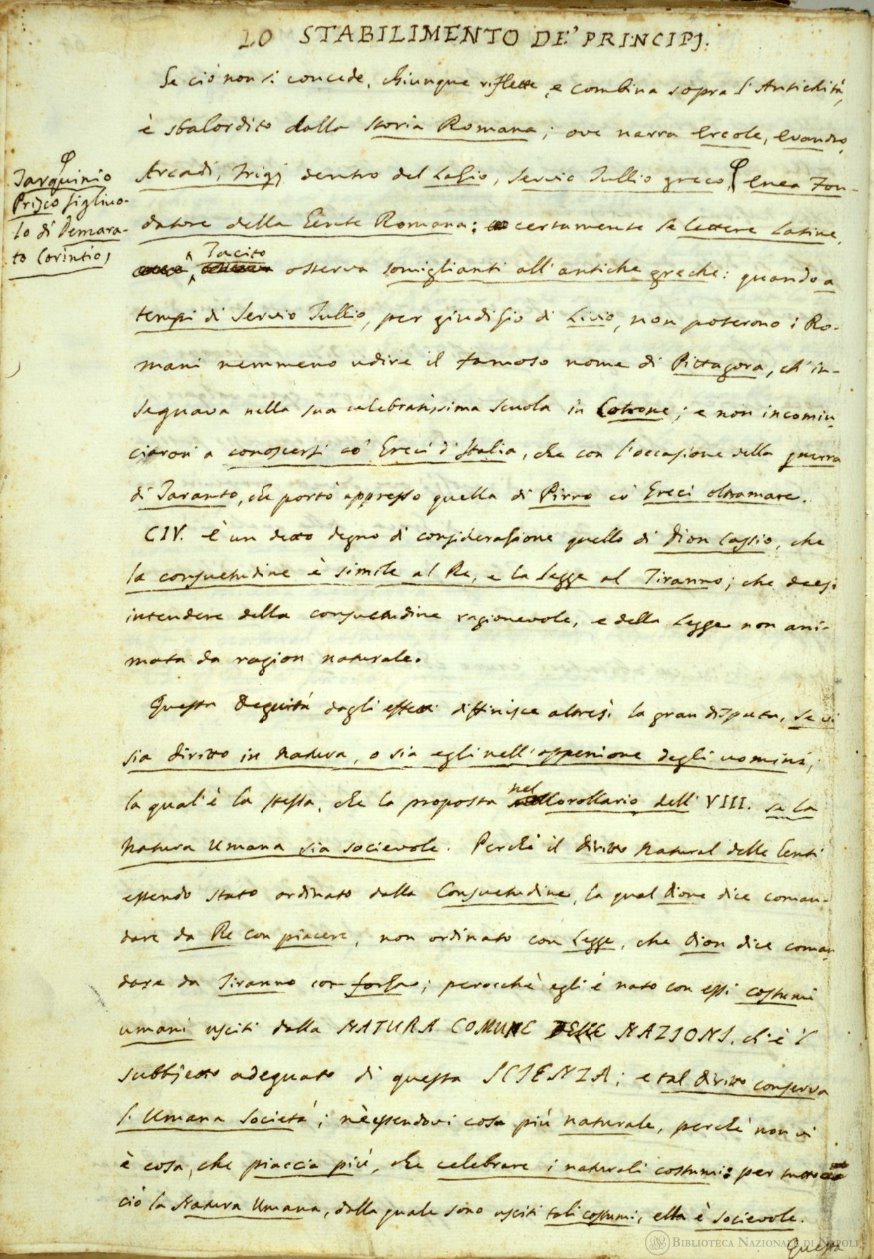 20 STABILIMENTO DE' PRINCIPJ.
Se ciò non si concede, chiunque riflette, e combina sopra l'Antichità,
è sbalordito dalla Storia Romana; ove narra Ercole, Evandro,
Arcadi, Frigj dentro del Lazio, Servio Tullio greco φ Enea Fon-
datore della Gente Romana: certamente le lettere Latine,
Tacito
osserva somiglianti all'antiche greche: quando a
tempi di Servio Tullio, per giudizio di Livio, non poterono i Ro-
mani nemmeno udire il famoso nome di Pittagora, ch'in-
segnava nella sua celebratissima scuola in Cotrone; e non incomin-
ciaron a conoscersi co' Greci d'Italia, che con l'occasione della guerra
di Taranto, che portò appresso quella di Pirro co' Greci oltramare.
φ
Tarquinio
Prisco figliuo-
lo di Demara-
to Corintio,
CIV. È un detto degno di considerazione quello di Dion Cassio, che
la consuetudine è simile al Re, e la Legge al Tiranno; che deesi
intendere della consuetudine ragionevole, e della Legge non ani-
mata da ragion naturale.
Questa Degnità dagli effetti diffinisce altresì la gran disputa, se vi
sia diritto in Natura, o sia egli nell'oppenione degli uomini;
la qual'è la stessa, che la proposta nel Corollario dell'VIII. se la
Natura Umana sia socievole. Perchè il diritto Natural delle Genti
essendo stato ordinato dalla Consuetudine, la qual Dione dice coman-
dare da Re con piacere, non ordinato con Legge, che Dion dice coman-
dare da Tiranno con forza; perocchè egli è nato con essi costumi
umani usciti dalla NATURA COMUNE DELLE NAZIONI, ch'è 'l
subbjetto adeguato di questa SCIENZA; e tal diritto conserva
l'Umana Società; nè essendovi cosa più naturale, perchè non vi
è cosa, che piaccia più, che celebrare i naturali costumi: per tutto
ciò la Natura Umana, dalla quale sono usciti tali costumi, ella è socievole.
Questa
BIBLIOTECA NAZIONALE DI NAPOLI